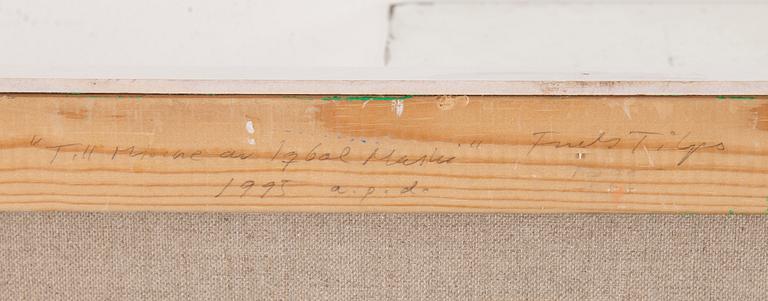 "Till Minne av Iqbal Masih" Truls Tilys
1995 a.p.d.